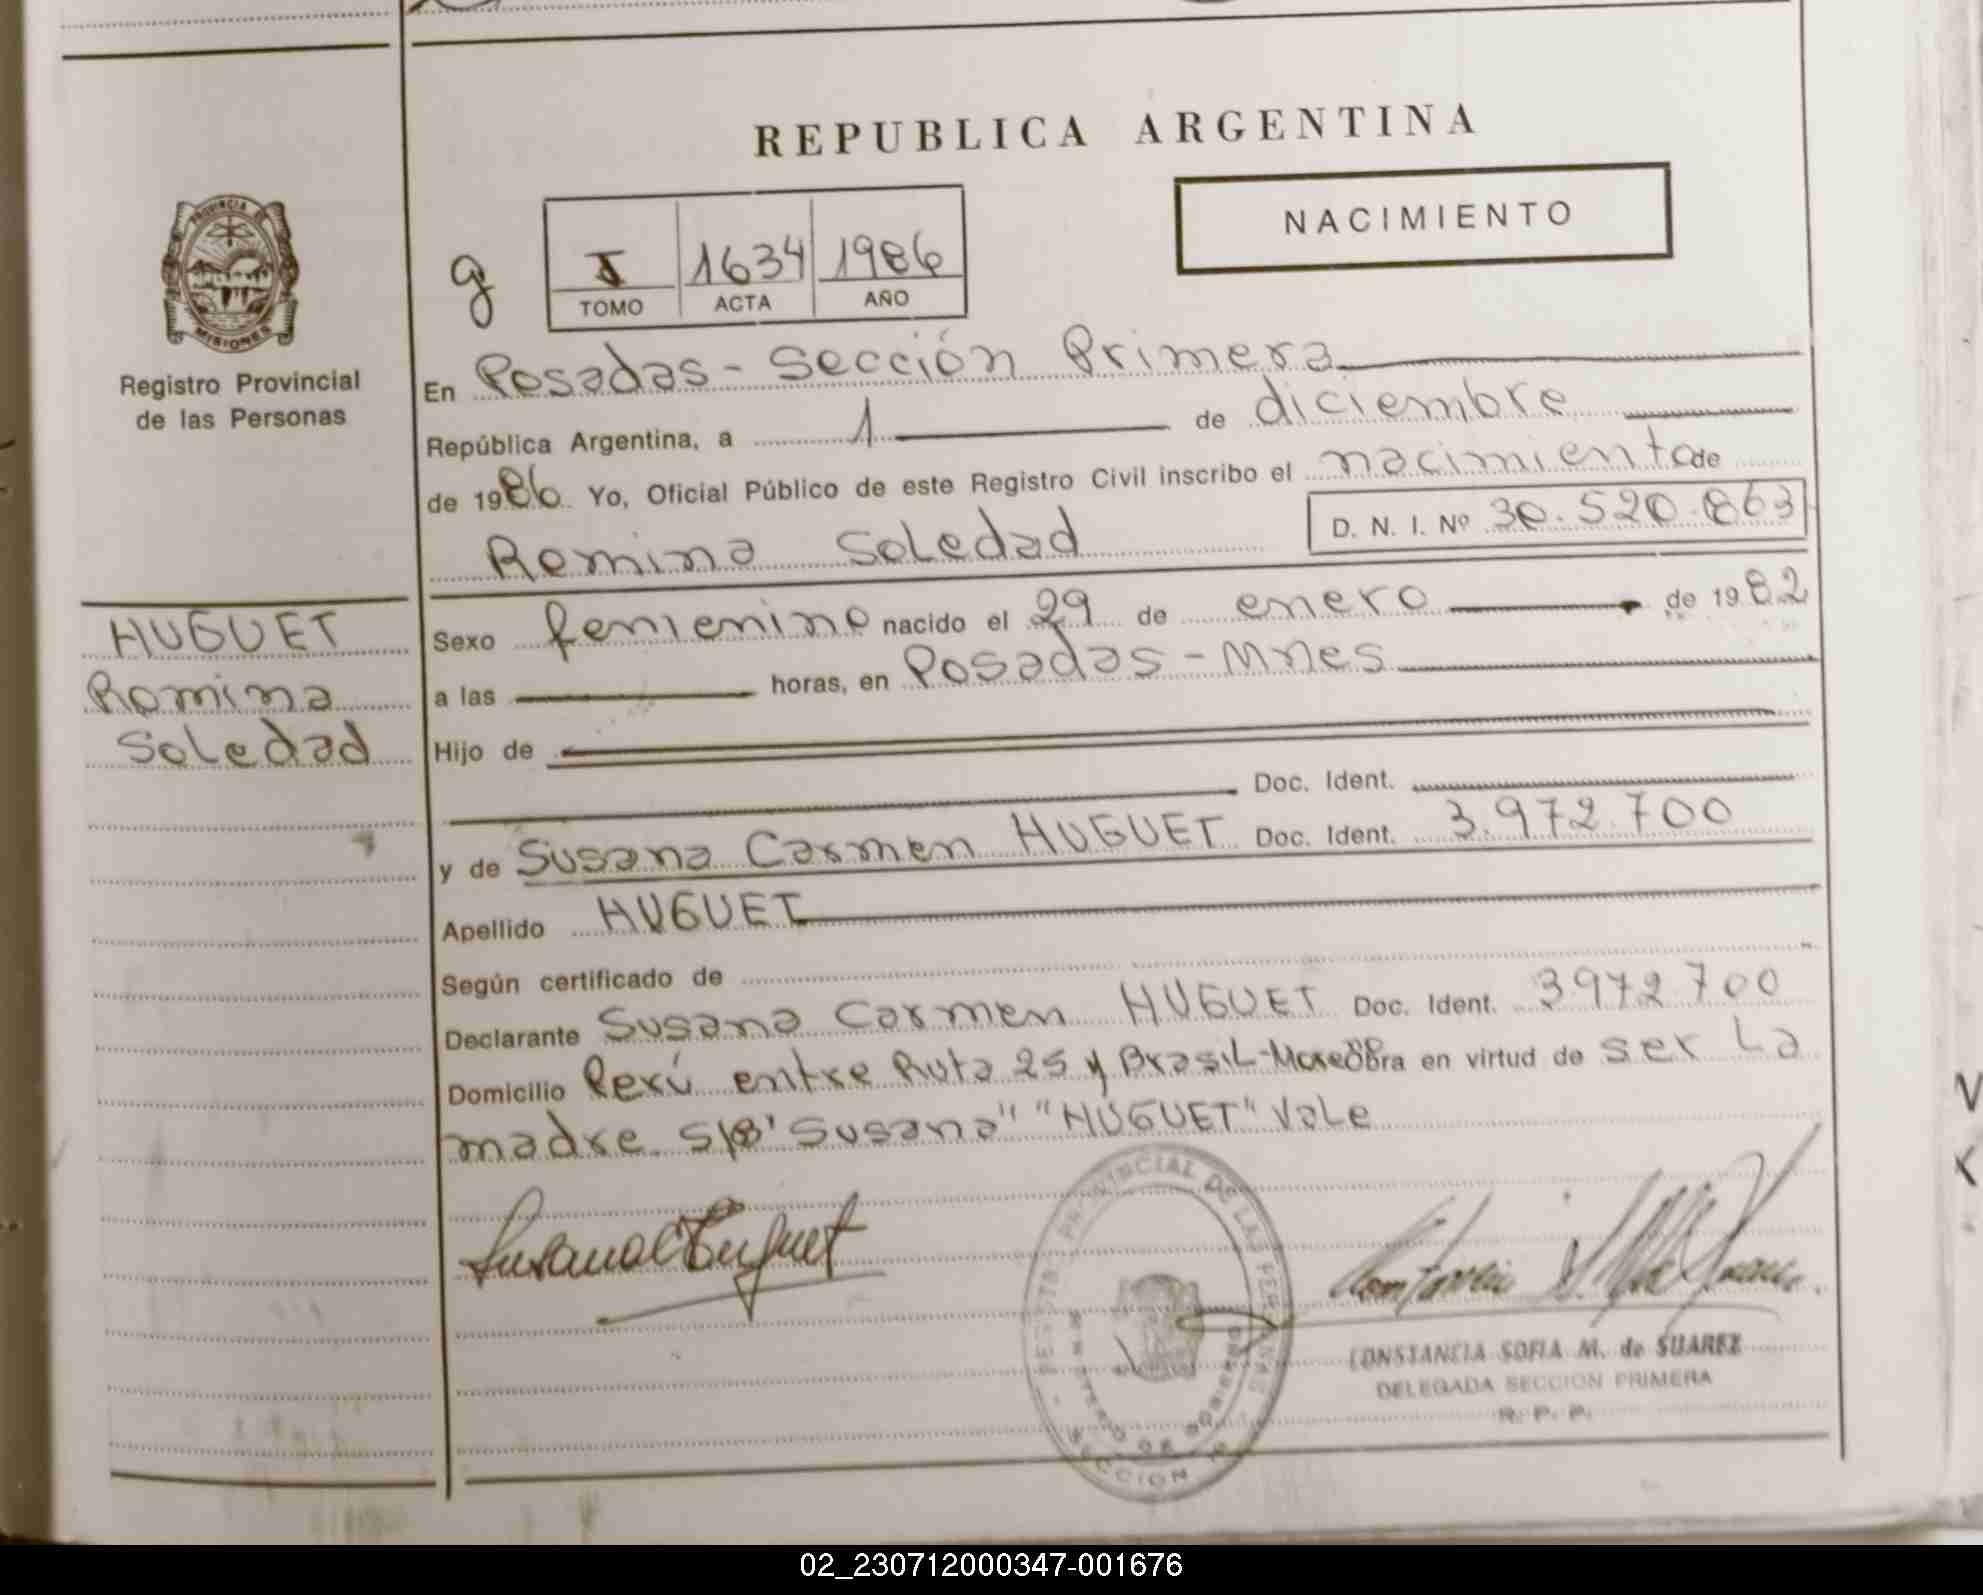 REPUBLICA ARGENTINA
PROVINCIA DE
MISIONES
Registro Provincial
de las Personas
g
I 1634 1986
TOMO ACTA AÑO
NACIMIENTO
En Posadas - Sección Primera
República Argentina, a 1 de diciembre
de 1986 Yo, Oficial Público de este Registro Civil inscribo el nacimiento de
D. N. I. Nº 30.520.863
Romina Soledad
HUGUET
Romina
Soledad
Sexo femenino nacido el 29 de enero de 1982
a las horas, en Posadas - Mnes
Hijo de
Doc. Ident.
y de Susana Carmen HUGUET Doc. Ident. 3.972.700
Apellido HUGUET
Según certificado de
Declarante Susana Carmen HUGUET Doc. Ident. 3972700
Domicilio Perú entre Ruta 25 y Brasil - Obra en virtud de ser La
madre. S/B "Susana" "HUGUET" Vale
Susana C Huguet
PROVINCIAL DE LAS PERSONAS
SECCION
CONSTANCIA SOFIA M. de SUAREZ
DELEGADA SECCION PRIMERA
R. P. P.
02_230712000347-001676